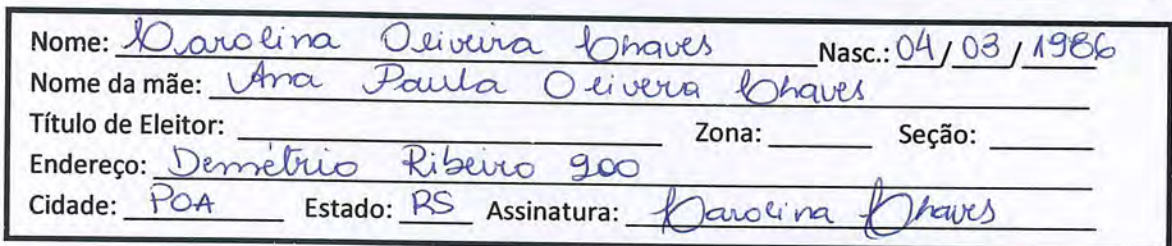 Nome: Carolina Oliveira Chaves Nasc.: 04/03/1986
Nome da mãe: Ana Paula Oliveira Chaves
Título de Eleitor: Zona: Seção:
Endereço: Demétrio Ribeiro 900
Cidade: POA Estado: RS Assinatura: Carolina Chaves